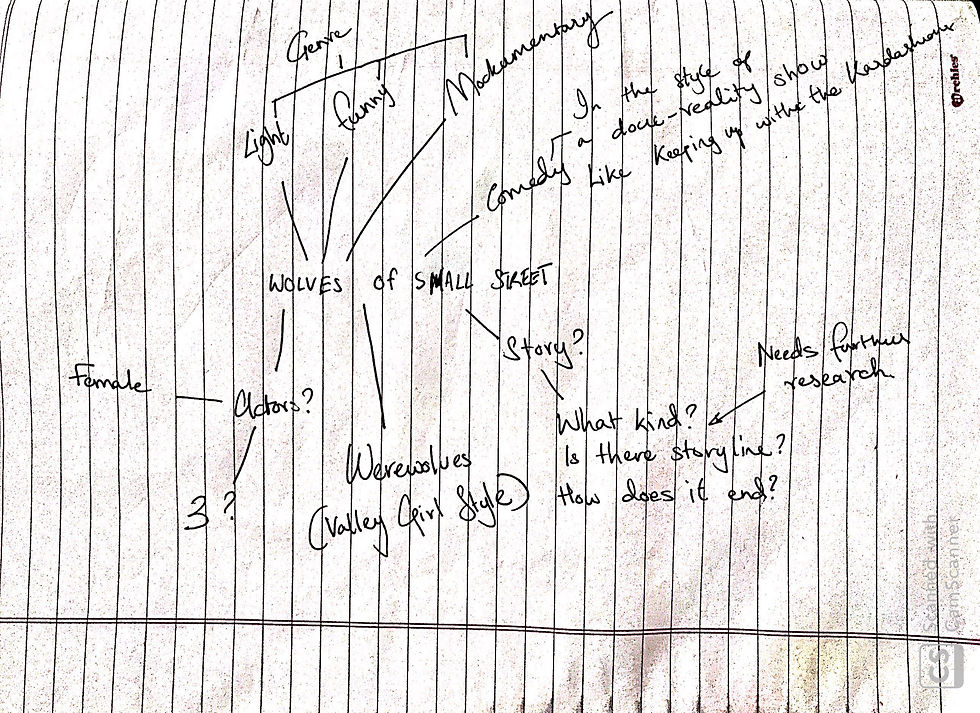 Genre
Light
funny
Mockumentary
In the style of
a docu-reality show
Like Keeping up withe the Kardashians
Comedy
WOLVES of SMALL STREET
Story?
Needs further
research
What kind?
Is there storyline?
How does it end?
Female
Actors?
3?
Werewolves
(Valley Girl Style)
Archies
Scanned with
CamScanner
CS